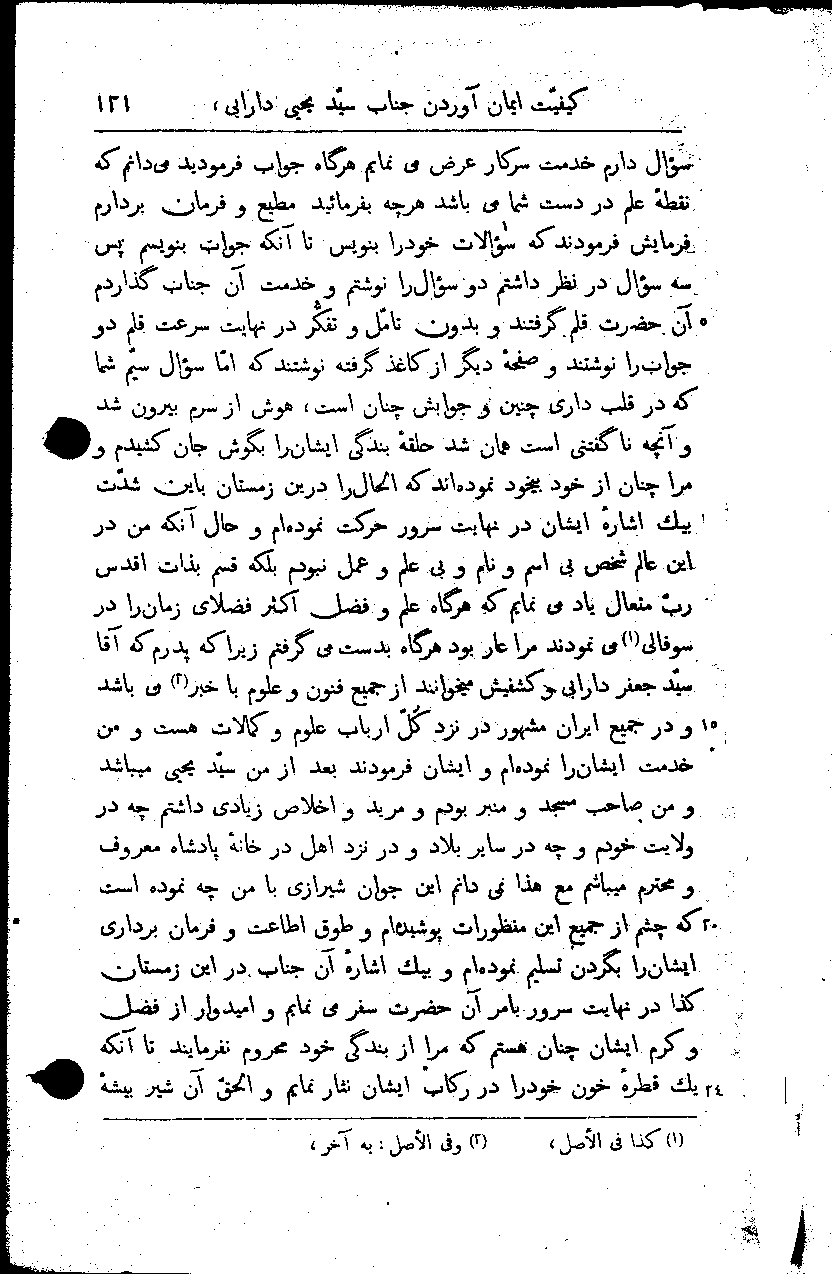 كيفيّت ايمان آوردن جناب سيّد يحيى دارابى، ١٢١
سؤال دارم خدمت سركار عرض مى نمايم هرگاه جواب فرموديد مى‌دانم كه
نقطهٔ علم در دست شما مى باشد هرچه بفرمائيد مطيع و فرمان بردارم
فرمايش فرمودند كه سؤالات خودرا بنويس تا آنكه جواب بنويسم پس
سه سؤال در نظر داشتم دو سؤال‌را نوشتم و خدمت آن جناب گذاردم
٥ آن حضرت قلم گرفتند و بدون تامّل و تفكّر در نهايت سرعت قلم دو
جواب‌را نوشتند و صفحهٔ ديگر از كاغذ گرفته نوشتند كه امّا سؤال سيّم شما
كه در قلب دارى چنين و جوابش چنان است، هوش از سرم بيرون شد
و آنچه نا گفتنى است همان شد حلقهٔ بندگى ايشان‌را بگوش جان كشيدم و
مرا چنان از خود بيخود نموده‌اند كه الحال‌را درين زمستان باين شدّت
بيك اشارهٔ ايشان در نهايت سرور حركت نموده‌ام و حال آنكه من در
اين عالم شخص بى اسم و نام و بى علم و عمل نبودم بلكه قسم بذات اقدس
ربّ متعال ياد مى نمايم كه هرگاه علم و فضل اكثر فضلاى زمان‌را در
سوفالى(١) مى نمودند مرا عار بود هرگاه بدست مى گرفتم زيرا كه پدرم كه آقا
سيّد جعفر دارابى و كشفيش ميخوانند از جميع فنون و علوم با خبر(٢) مى باشد
١٥ و در جميع ايران مشهور در نزد كُلّ ارباب علوم و كمالات هست و من
خدمت ايشان‌را نموده‌ام و ايشان فرمودند بعد از من سيّد يحيى ميباشد
و من صاحب مسجد و منبر بودم و مريد و اخلاص زيادى داشتم چه در
ولايت خودم و چه در ساير بلاد و در نزد اهل در خانهٔ پادشاه معروف
و محترم ميباشم مع هذا نمى دانم اين جوان شيرازى با من چه نموده است
٢٠ كه چشم از جميع اين منظورات پوشيده‌ام و طوق اطاعت و فرمان بردارى
ايشان‌را بگردن تسليم نموده‌ام و بيك اشارهٔ آن جناب در اين زمستان
كذا در نهايت سرور بامر آن حضرت سفر مى نمايم و اميدوار از فضل
و كرم ايشان چنان هستم كه مرا از بندگى خود محروم نفرمايند تا آنكه
٢٤ يك قطرهٔ خون خودرا در ركاب ايشان نثار نمايم و الحقّ آن شير بيشهٔ
(١) كذا فى الأصل، (٢) وفى الأصل: به آخر،